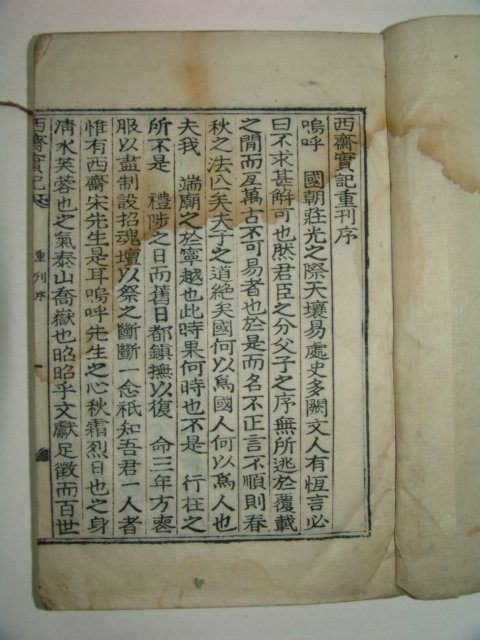 西齋實記重刊序
嗚呼 國朝莊光之際天壤易處史多闕文人有恆言必
曰不求甚解可也然君臣之分父子之序無所逃於覆載
之間而亙萬古不可易者也於是而名不正言不順則春
秋之法亡矣夫子之道絶矣國何以爲國人何以爲人也
夫我 端廟之於寧越也此時果何時也不是 行在之
所不是 禮陟之日而舊日都鎮撫以復 命三年方喪
服以盡制設招魂壇以祭之斷斷一念祇知吾君一人者
惟有西齋宋先生是耳嗚呼先生之心秋霜烈日也之身
淸水芙蓉也之氣泰山喬嶽也昭昭乎文獻足徵而百世
西齋實記
重刊序
一